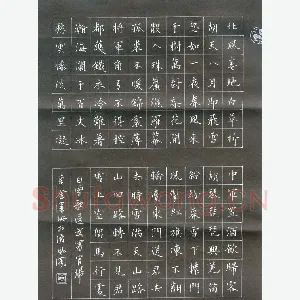 北風捲地白草折
胡天八月即飛雪
忽如一夜春風來
千樹萬樹梨花開
散入珠簾濕羅幕
狐裘不暖錦衾薄
將軍角弓不得控
都護鐵衣冷難著
瀚海闌干百丈冰
愁雲慘淡萬里凝
中軍置酒飲歸客
胡琴琵琶與羌笛
紛紛暮雪下轅門
風掣紅旗凍不翻
輪臺東門送君去
去時雪滿天山路
山迴路轉不見君
雪上空留馬行處
白雪歌送武判官歸